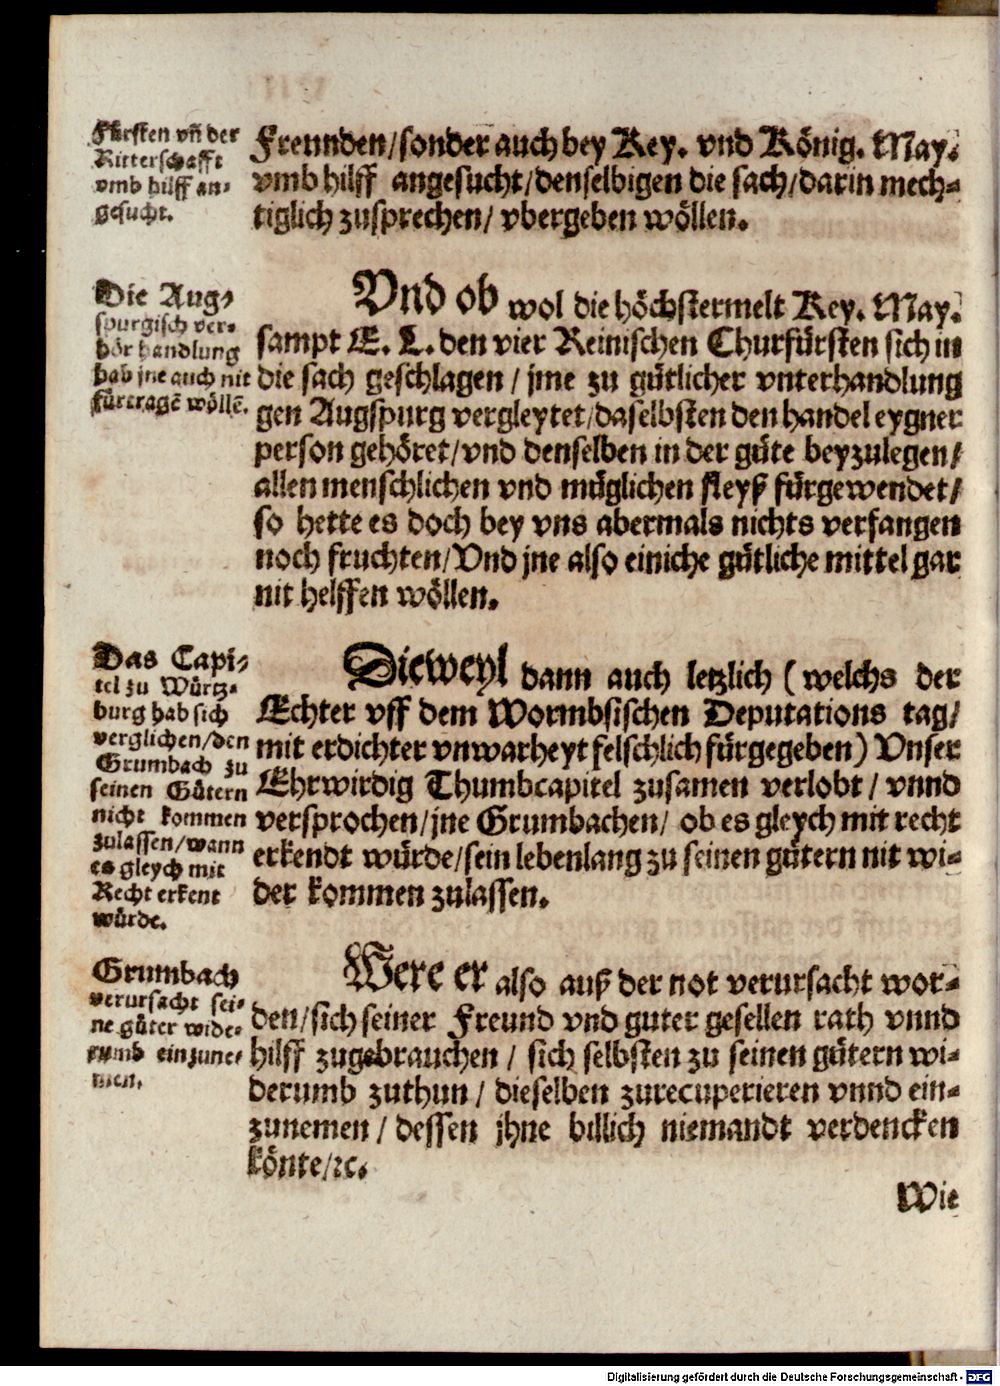 Fürsten vñ der
Ritterschafft
vmb hilff an-
gesucht.
Freunden/sonder auch bey Key. vnd König. May.
vmb hilff angesucht/denselbigen die sach/darin mech-
tiglich zusprechen/ vbergeben wöllen.
Die Aug-
spurgisch ver-
hör handlung
hab jne auch nit
fürtragē wöllē.
Vnd ob wol die höchstermelt Key. May.
sampt E. L. den vier Reinischen Churfürsten sich in
die sach geschlagen / jme zu gütlicher vnterhandlung
gen Augspurg vergleytet/daselbsten den handel eygner
person gehöret/vnd denselben in der güte beyzulegen/
allen menschlichen vnd müglichen fleyß fürgewendet/
so hette es doch bey vns abermals nichts verfangen
noch fruchten/Vnd jne also einiche gütliche mittel gar
nit helffen wöllen.
Das Capi-
tel zu Würtz-
burg hab sich
verglichen/den
Grumbach zu
seinen Gütern
nicht kommen
zulassen/wann
es gleych mit
Recht erkent
würde.
Dieweyl dann auch letzlich ( welchs der
Echter vff dem Wormbsischen Deputations tag/
mit erdichter vnwarheyt felschlich fürgegeben) Vnser
Ehrwirdig Thumbcapitel zusamen verlobt / vnnd
versprochen/jne Grumbachen/ ob es gleych mit recht
erkendt würde/sein lebenlang zu seinen gütern nit wi-
der kommen zulassen.
Grumbach
verursacht sei-
ne güter wide-
rumb einzune-
men.
Were er also auß der not verursacht wor-
den/sich seiner Freund vnd guter gesellen rath vnnd
hilff zugebrauchen / sich selbsten zu seinen gütern wi-
derumb zuthun / dieselben zurecuperieren vnnd ein-
zunemen / dessen jhne billich niemandt verdencken
könte/ꝛc.
Wie
Digitalisierung gefördert durch die Deutsche Forschungsgemeinschaft - DFG